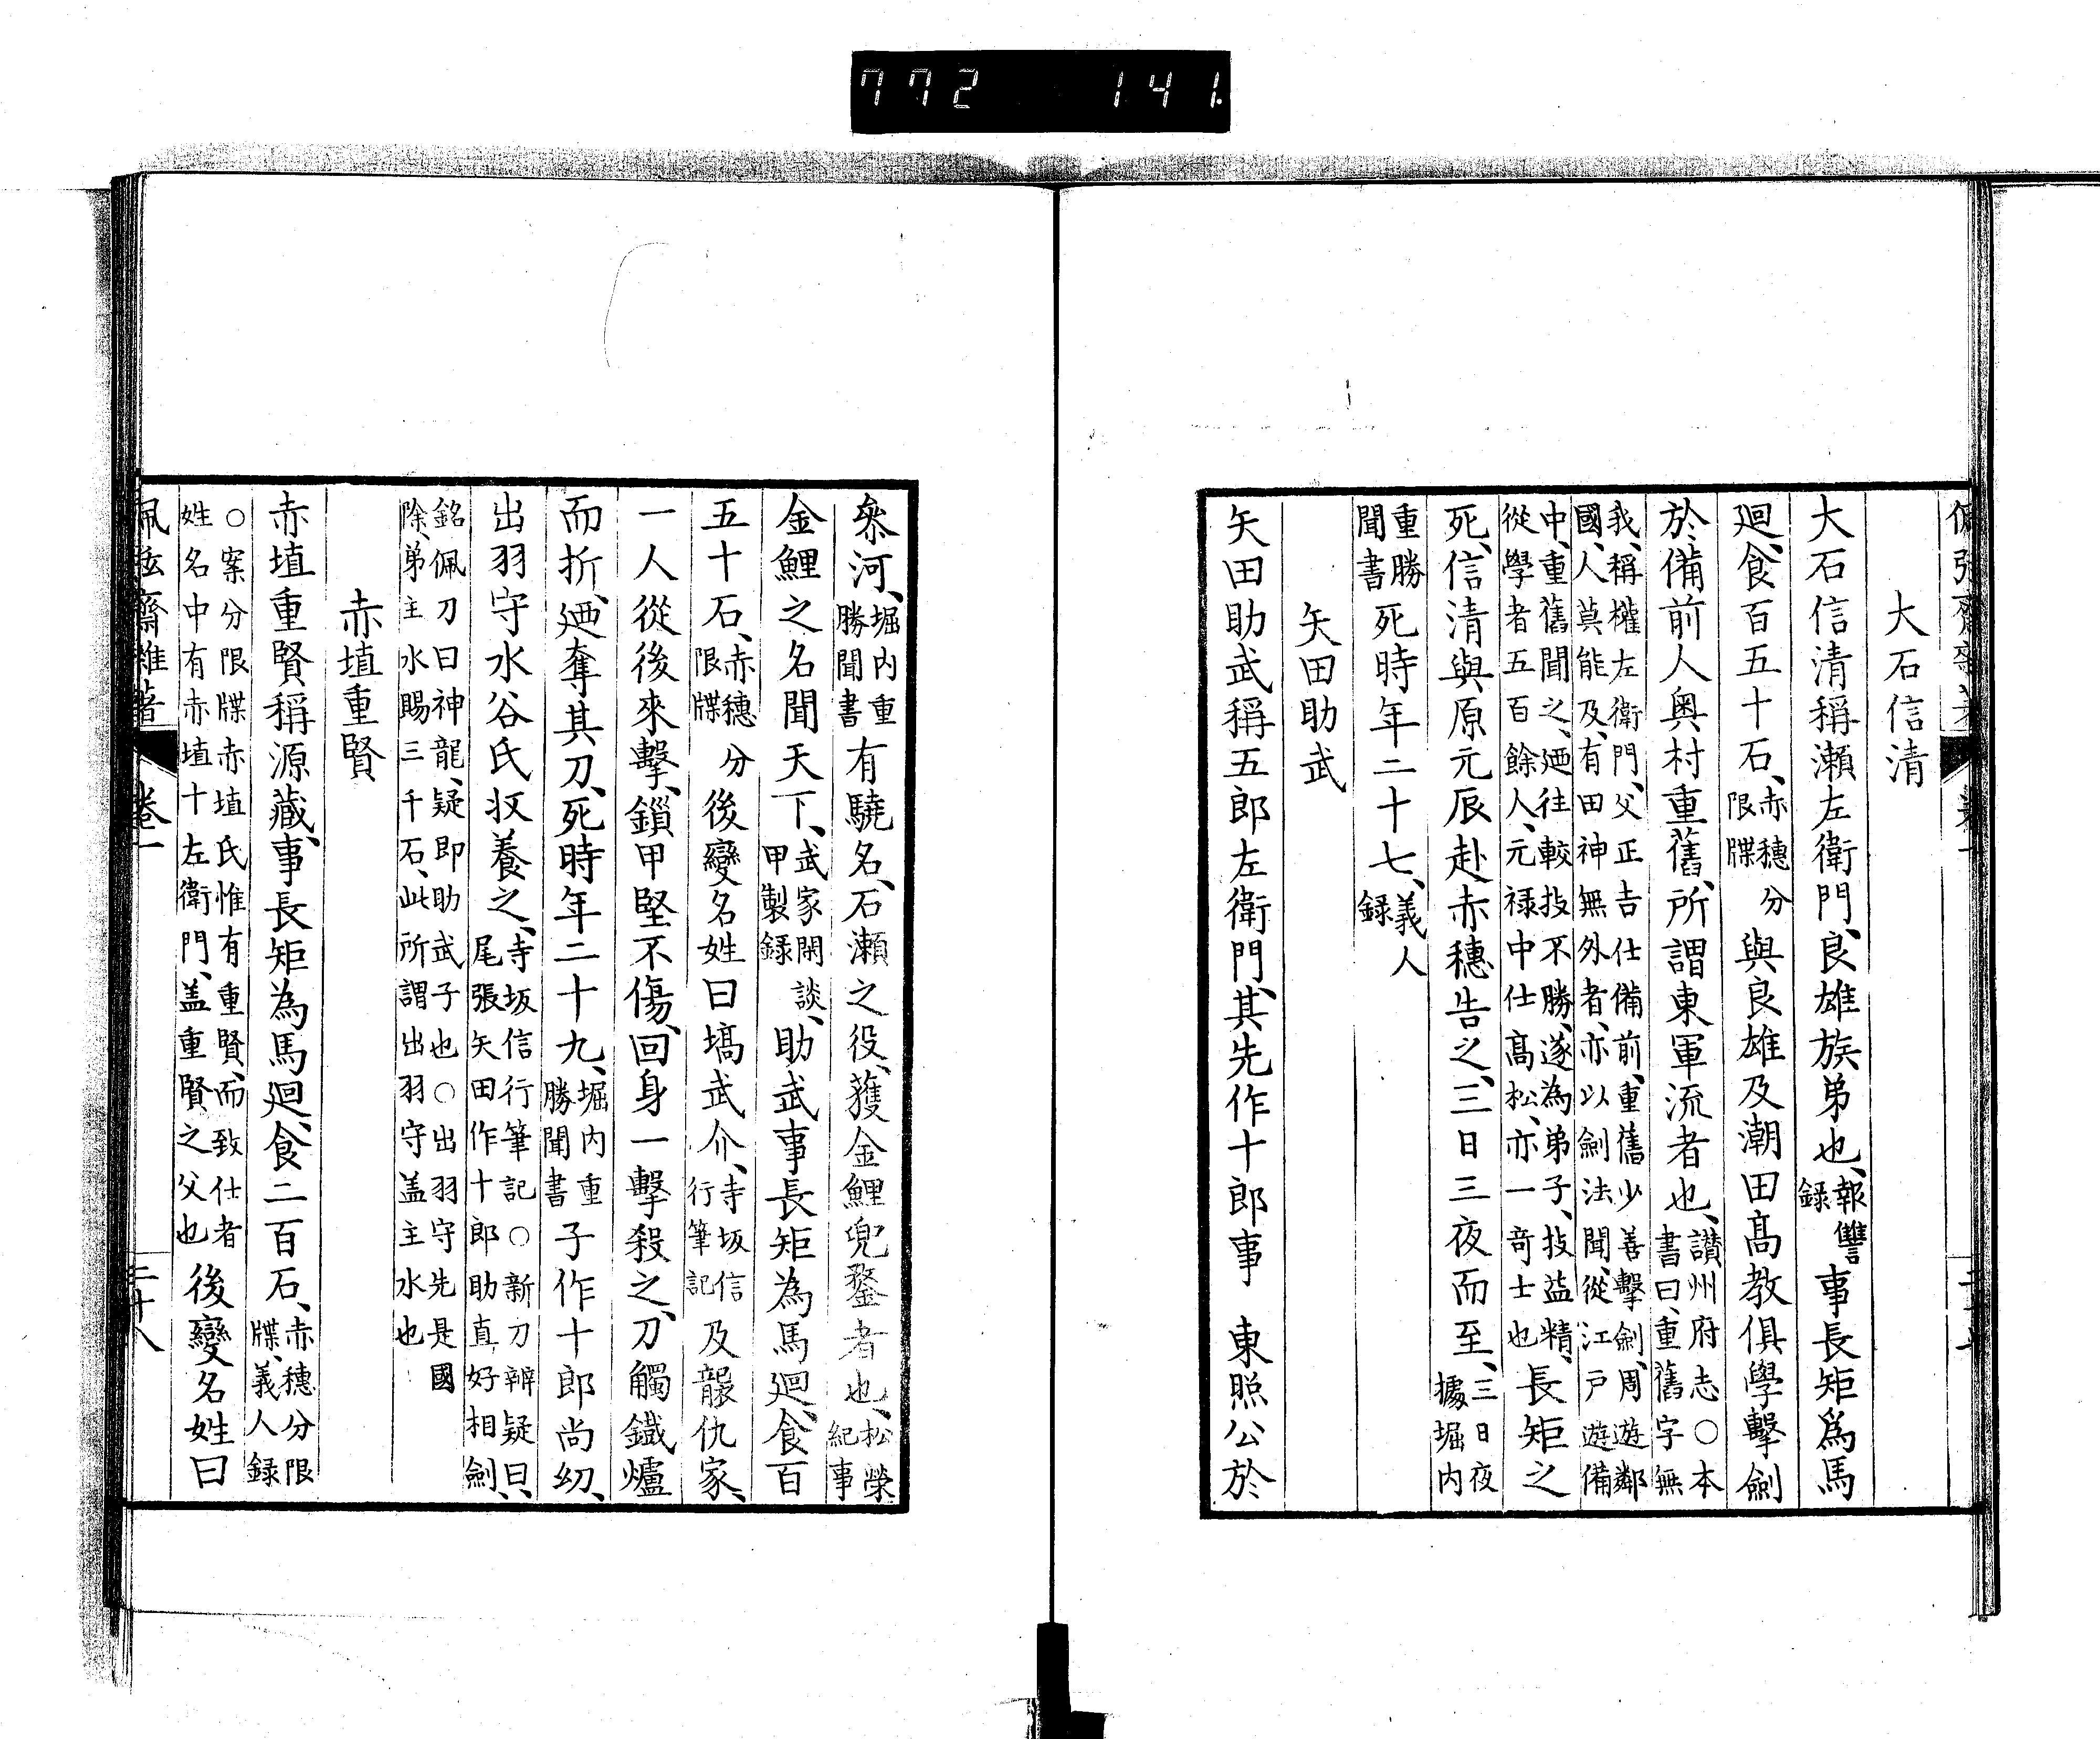 大石信清
大石信清稱瀬左衛門、良雄族弟也、報讐録事長矩爲馬
廻、食百五十石、赤穗分限牒與良雄及潮田高教俱學擊劍
於備前人奥村重舊、所謂東軍流者也、讃州府志○本書曰、重舊字無
我、稱權左衛門、父正吉仕備前、重舊少善擊劍、周遊鄰國、人莫能及、有田神無外者、亦以劍法聞、從江戸遊備
中、重舊聞之、廼往較技不勝、遂為弟子、技益精、從學者五百餘人、元禄中仕高松、亦一奇士也、長矩之
死、信清與原元辰赴赤穗告之、三日三夜而至、三日夜據堀内
重勝聞書死時年二十七、義人録
矢田助武
矢田助武稱五郎左衛門、其先作十郎事 東照公於
叅河、堀内重勝聞書有驍名、石瀬之役、獲金鯉兜鍪者也、松榮紀事
金鯉之名聞天下、武家閑談、甲製録助武事長矩為馬廻、食百
五十石、赤穗分限牒後變名姓曰塙武介、寺坂信行筆記及襲仇家、
一人從後來擊、鎖甲堅不傷、回身一擊殺之、刀觸鐵爐
而折、廼奪其刀、死時年二十九、堀内重勝聞書子作十郎尚幼、
出羽守水谷氏収養之、寺坂信行筆記○新刀辨疑曰、尾張矢田作十郎助直好相劍、
銘佩刀曰神龍、疑即助武子也○出羽守先是國除、弟主水賜三千石、此所謂出羽守盖主水也
赤埴重賢
赤埴重賢稱源藏、事長矩為馬廻、食二百石、赤穗分限牒、義人録
○案分限牒赤埴氏惟有重賢、而致仕者姓名中有赤埴十左衛門、盖重賢之父也後變名姓曰
佩弦齋雜著 卷一 二十八
772 141.